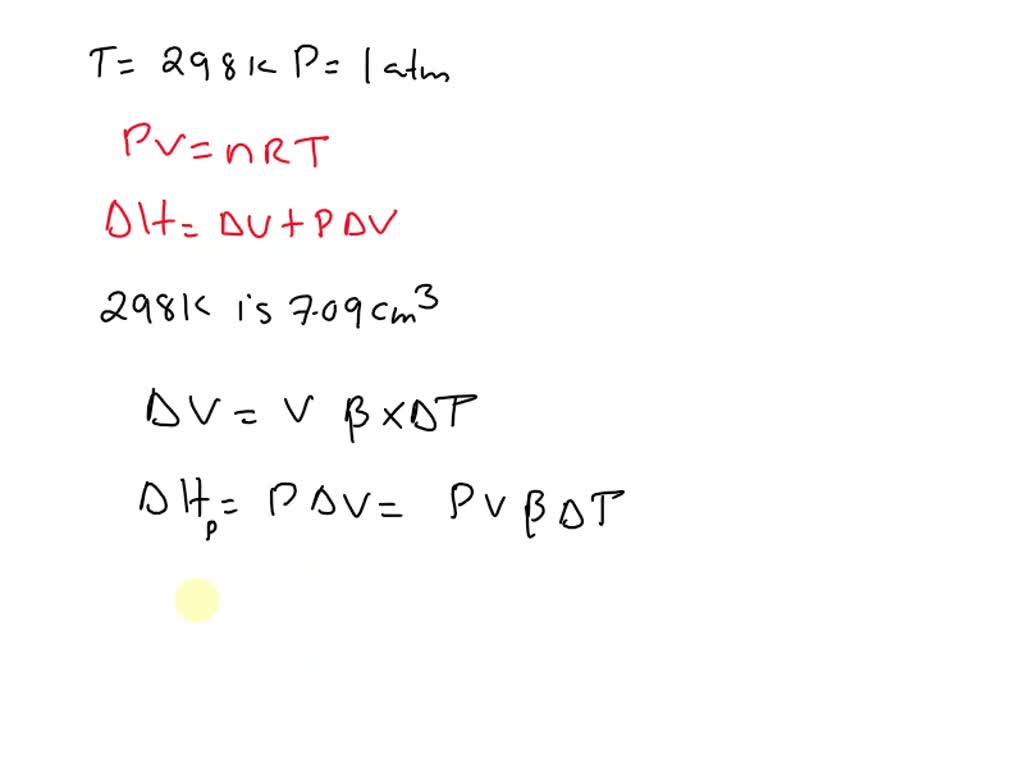 T= 298K P= 1 atm
PV=nRT
ΔH= ΔU+PΔV
298K is 7.09cm³
ΔV= V β×ΔT
ΔHₚ= PΔV= PVβΔT